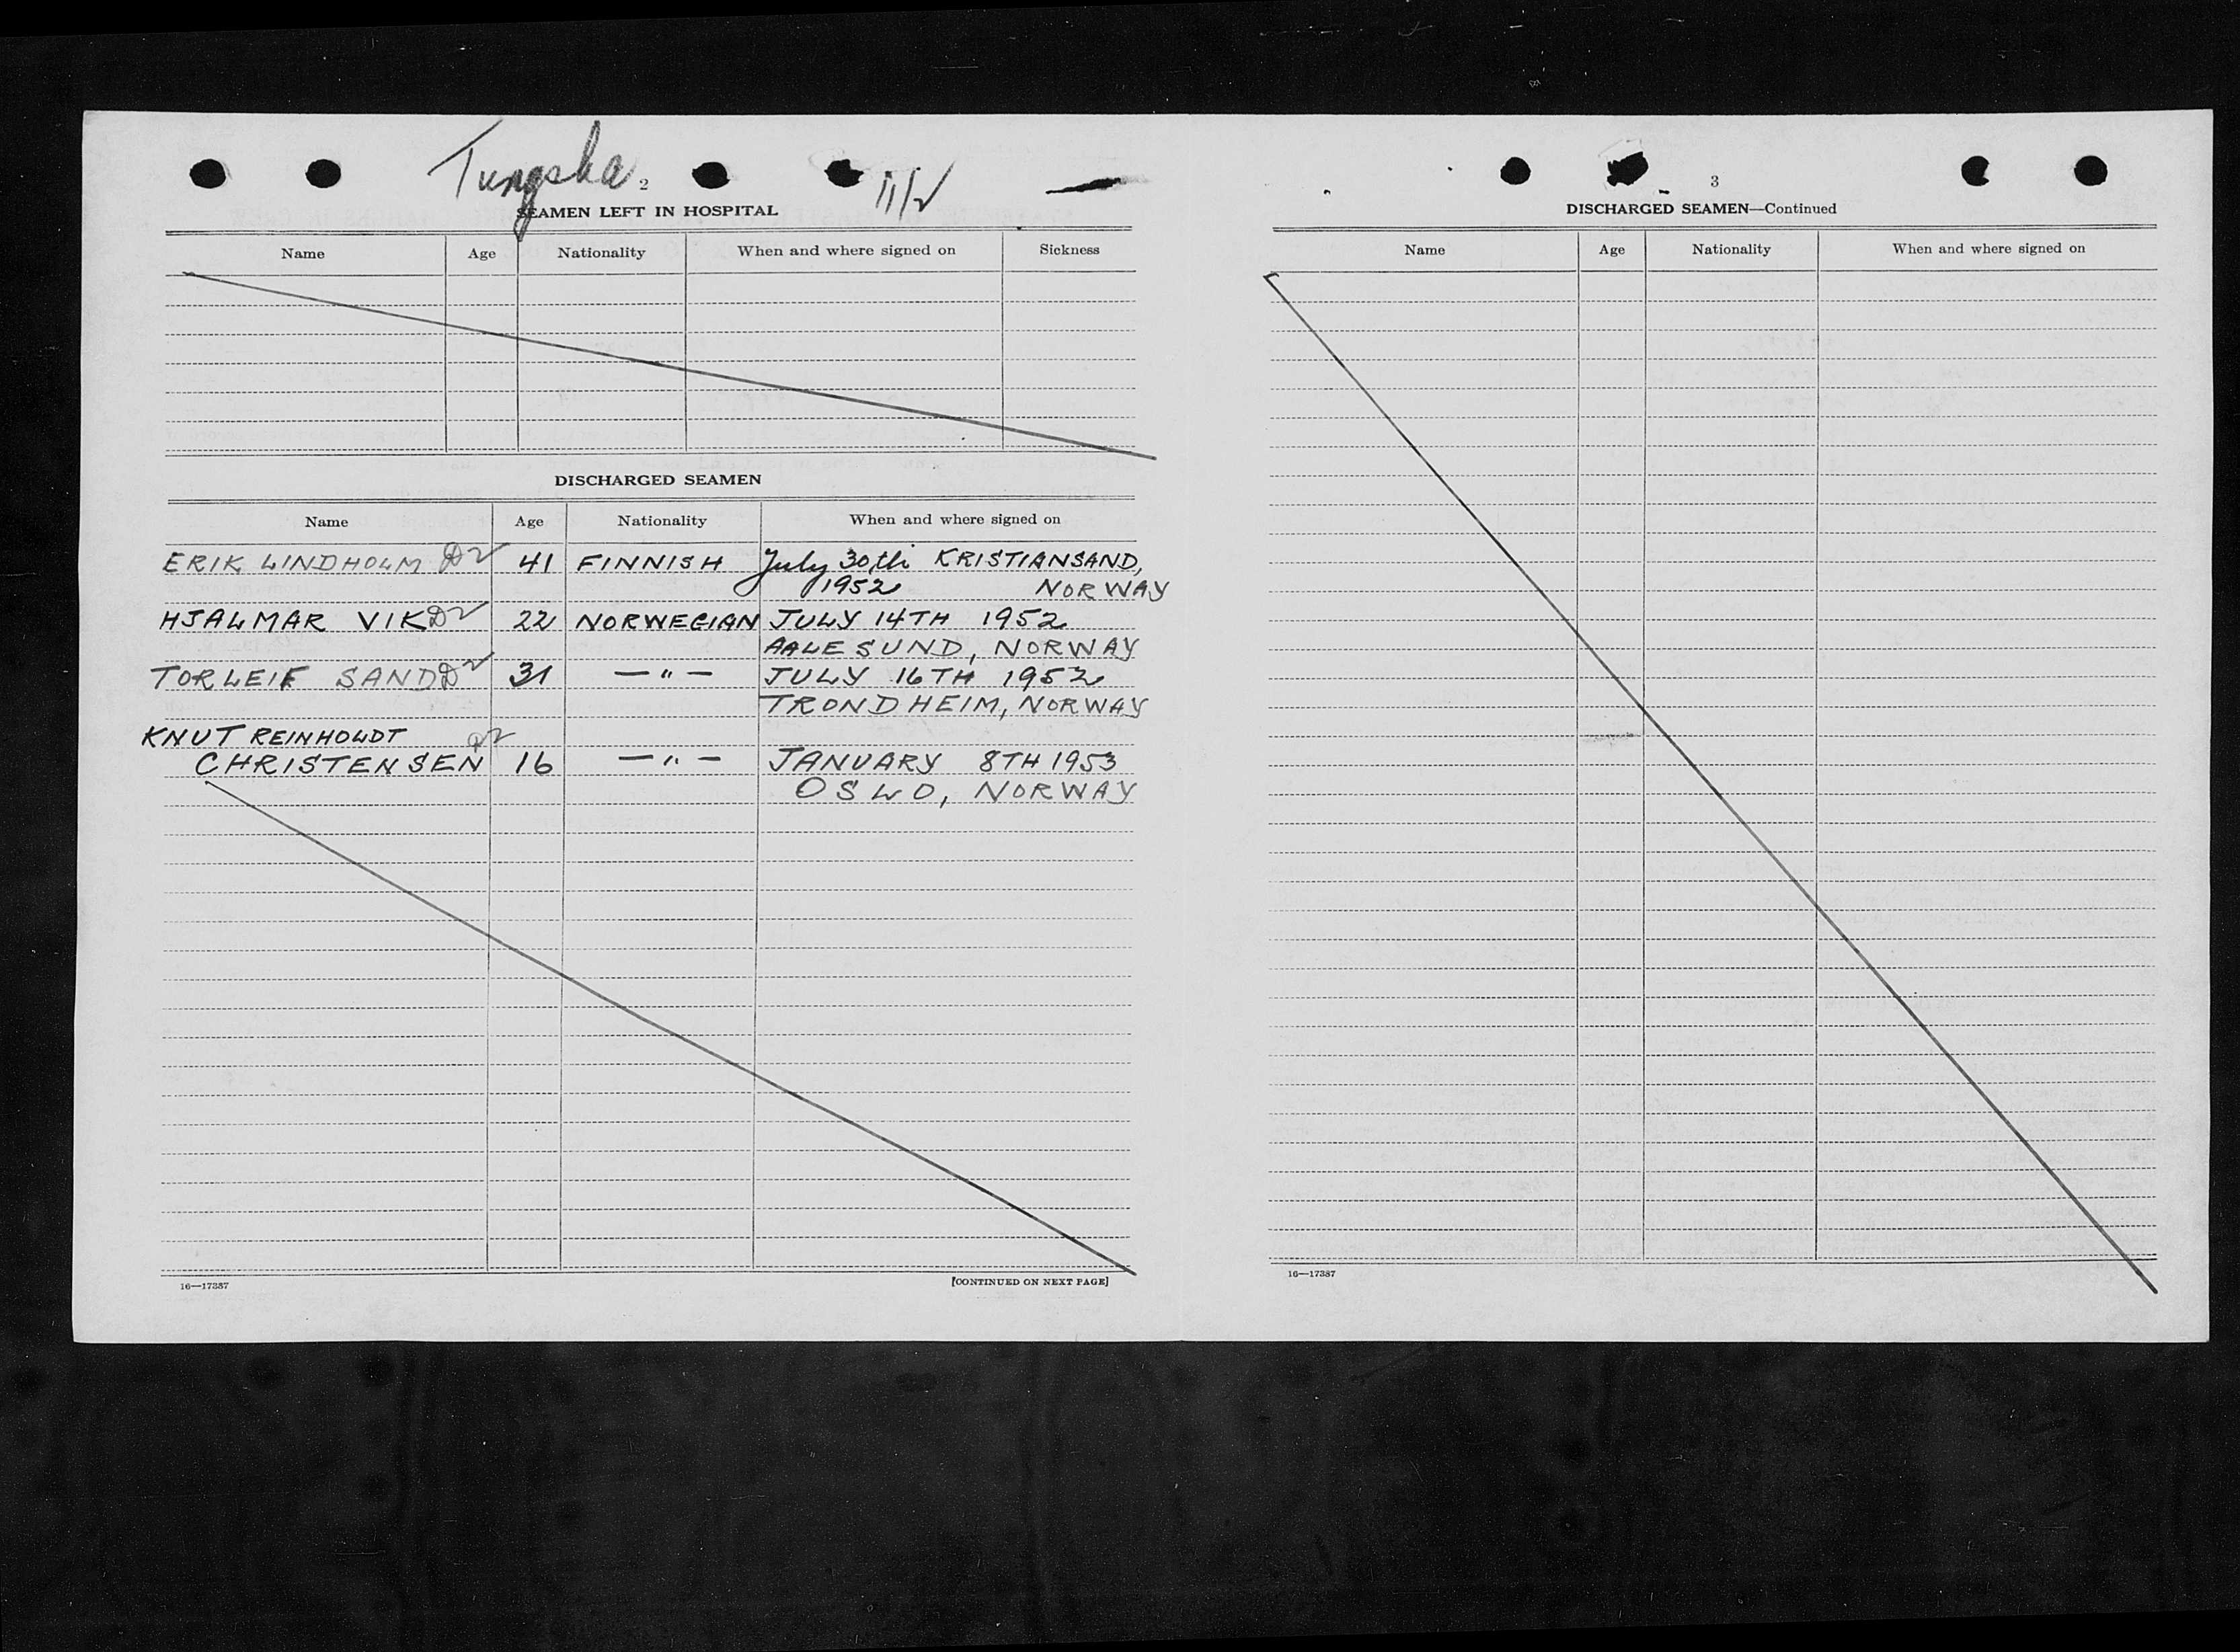 Tungsha 2 11/2
SEAMEN LEFT IN HOSPITAL
Name Age Nationality When and where signed on Sickness
DISCHARGED SEAMEN
Name Age Nationality When and where signed on
ERIK LINDHOLM D2 41 FINNISH July 30th KRISTIANSAND,
1952 NORWAY
HJALMAR VIK D2 22 NORWEGIAN JULY 14TH 1952
AALESUND, NORWAY
TORLEIF SAND D2 31 — " — JULY 16TH 1952
TRONDHEIM, NORWAY
KNUT REINHOLDT
CHRISTENSEN D2 16 — " — JANUARY 8TH 1953
OSLO, NORWAY
16—17387 [CONTINUED ON NEXT PAGE]
3
DISCHARGED SEAMEN—Continued
Name Age Nationality When and where signed on
16—17387